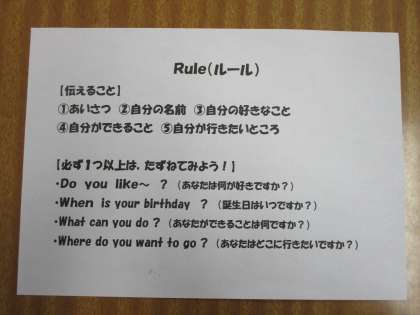 Rule(ルール)
【伝えること】
①あいさつ ②自分の名前 ③自分の好きなこと
④自分ができること ⑤自分が行きたいところ
【必ず1つ以上は、たずねてみよう！】
・Do you like～ ？（あなたは何が好きですか？）
・When is your birthday ？（誕生日はいつですか？）
・What can you do？（あなたができることは何ですか？）
・Where do you want to go？（あなたはどこに行きたいですか？）